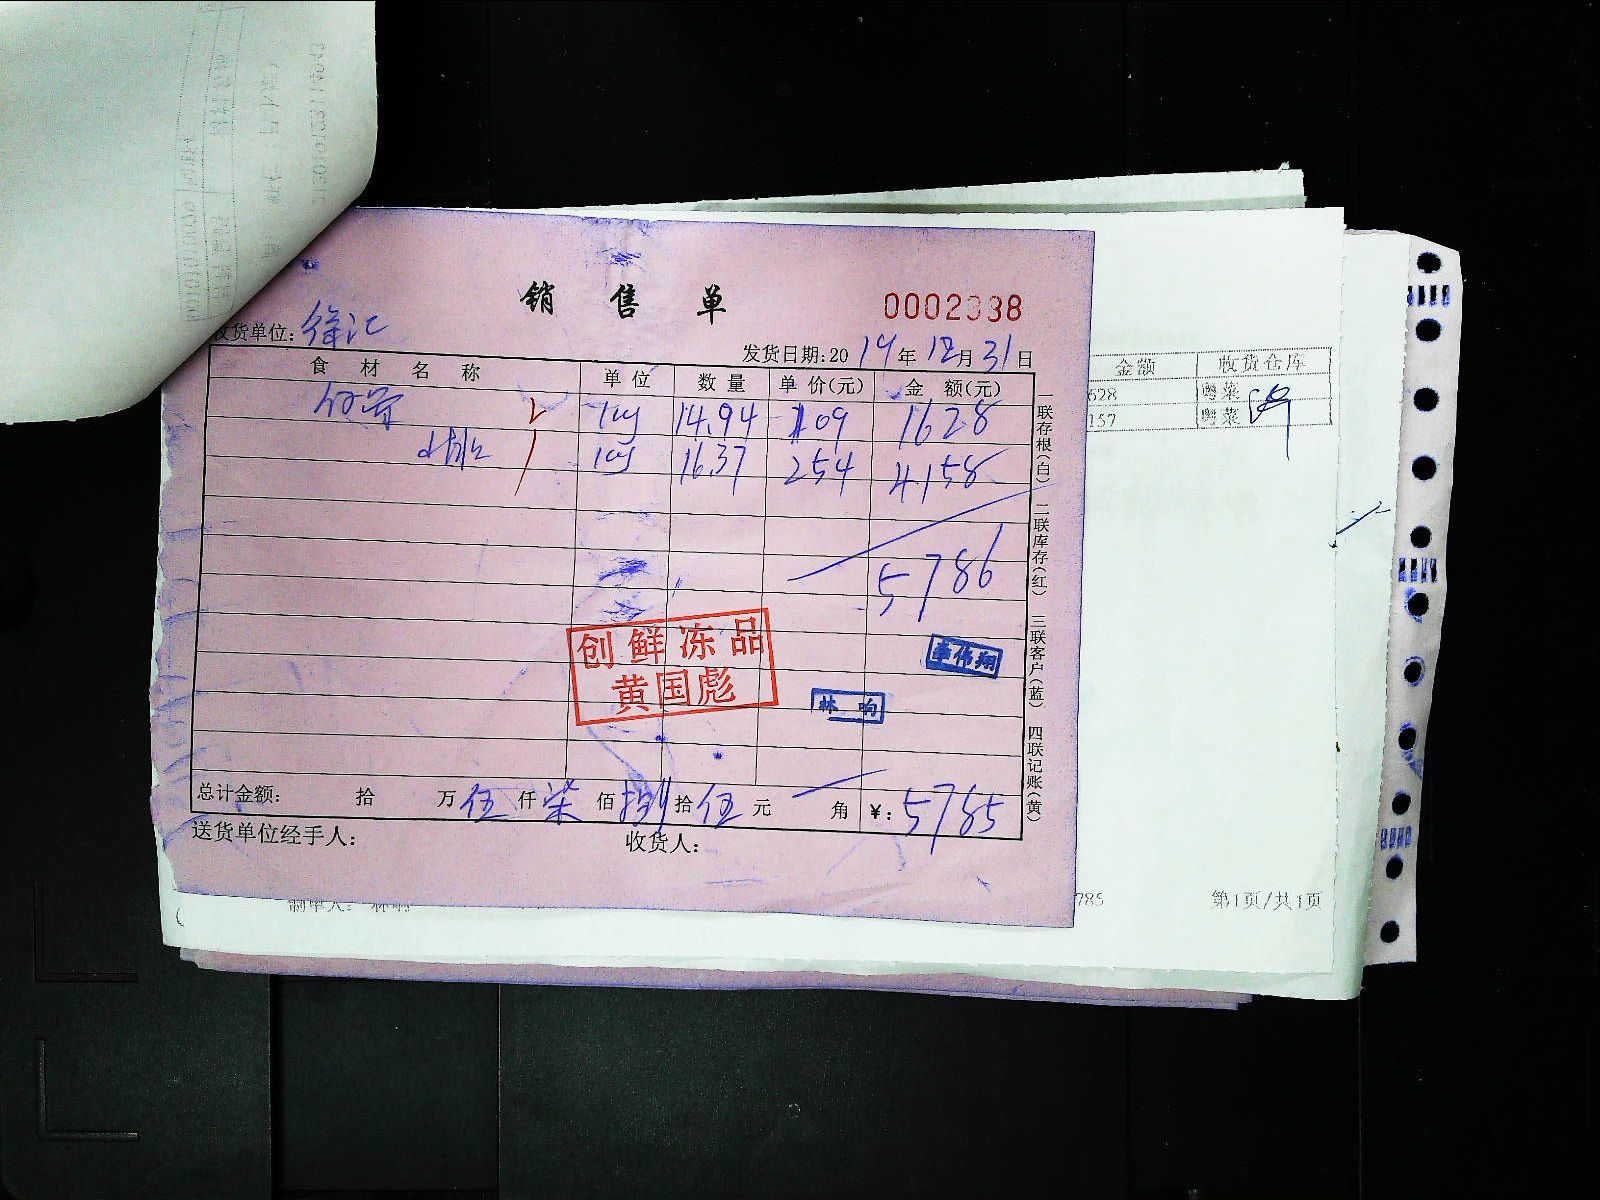 销售单
0002338
收货单位: 徐汇
发货日期: 2019年12月31日
食材名称 单位 数量 单价(元) 金额(元)
kg 14.94 109 1628
kg 16.37 254 4158
5786
创鲜冻品
黄国彪
李伟翔
林响
总计金额: 拾 万 伍仟柒佰捌拾伍元 角 ¥: 5785
送货单位经手人: 收货人:
一联存根(白) 二联库存(红) 三联客户(蓝) 四联记账(黄)
金额 收货仓库
628 粤菜
157 粤菜
制单人: 林响
785 第1页/共1页